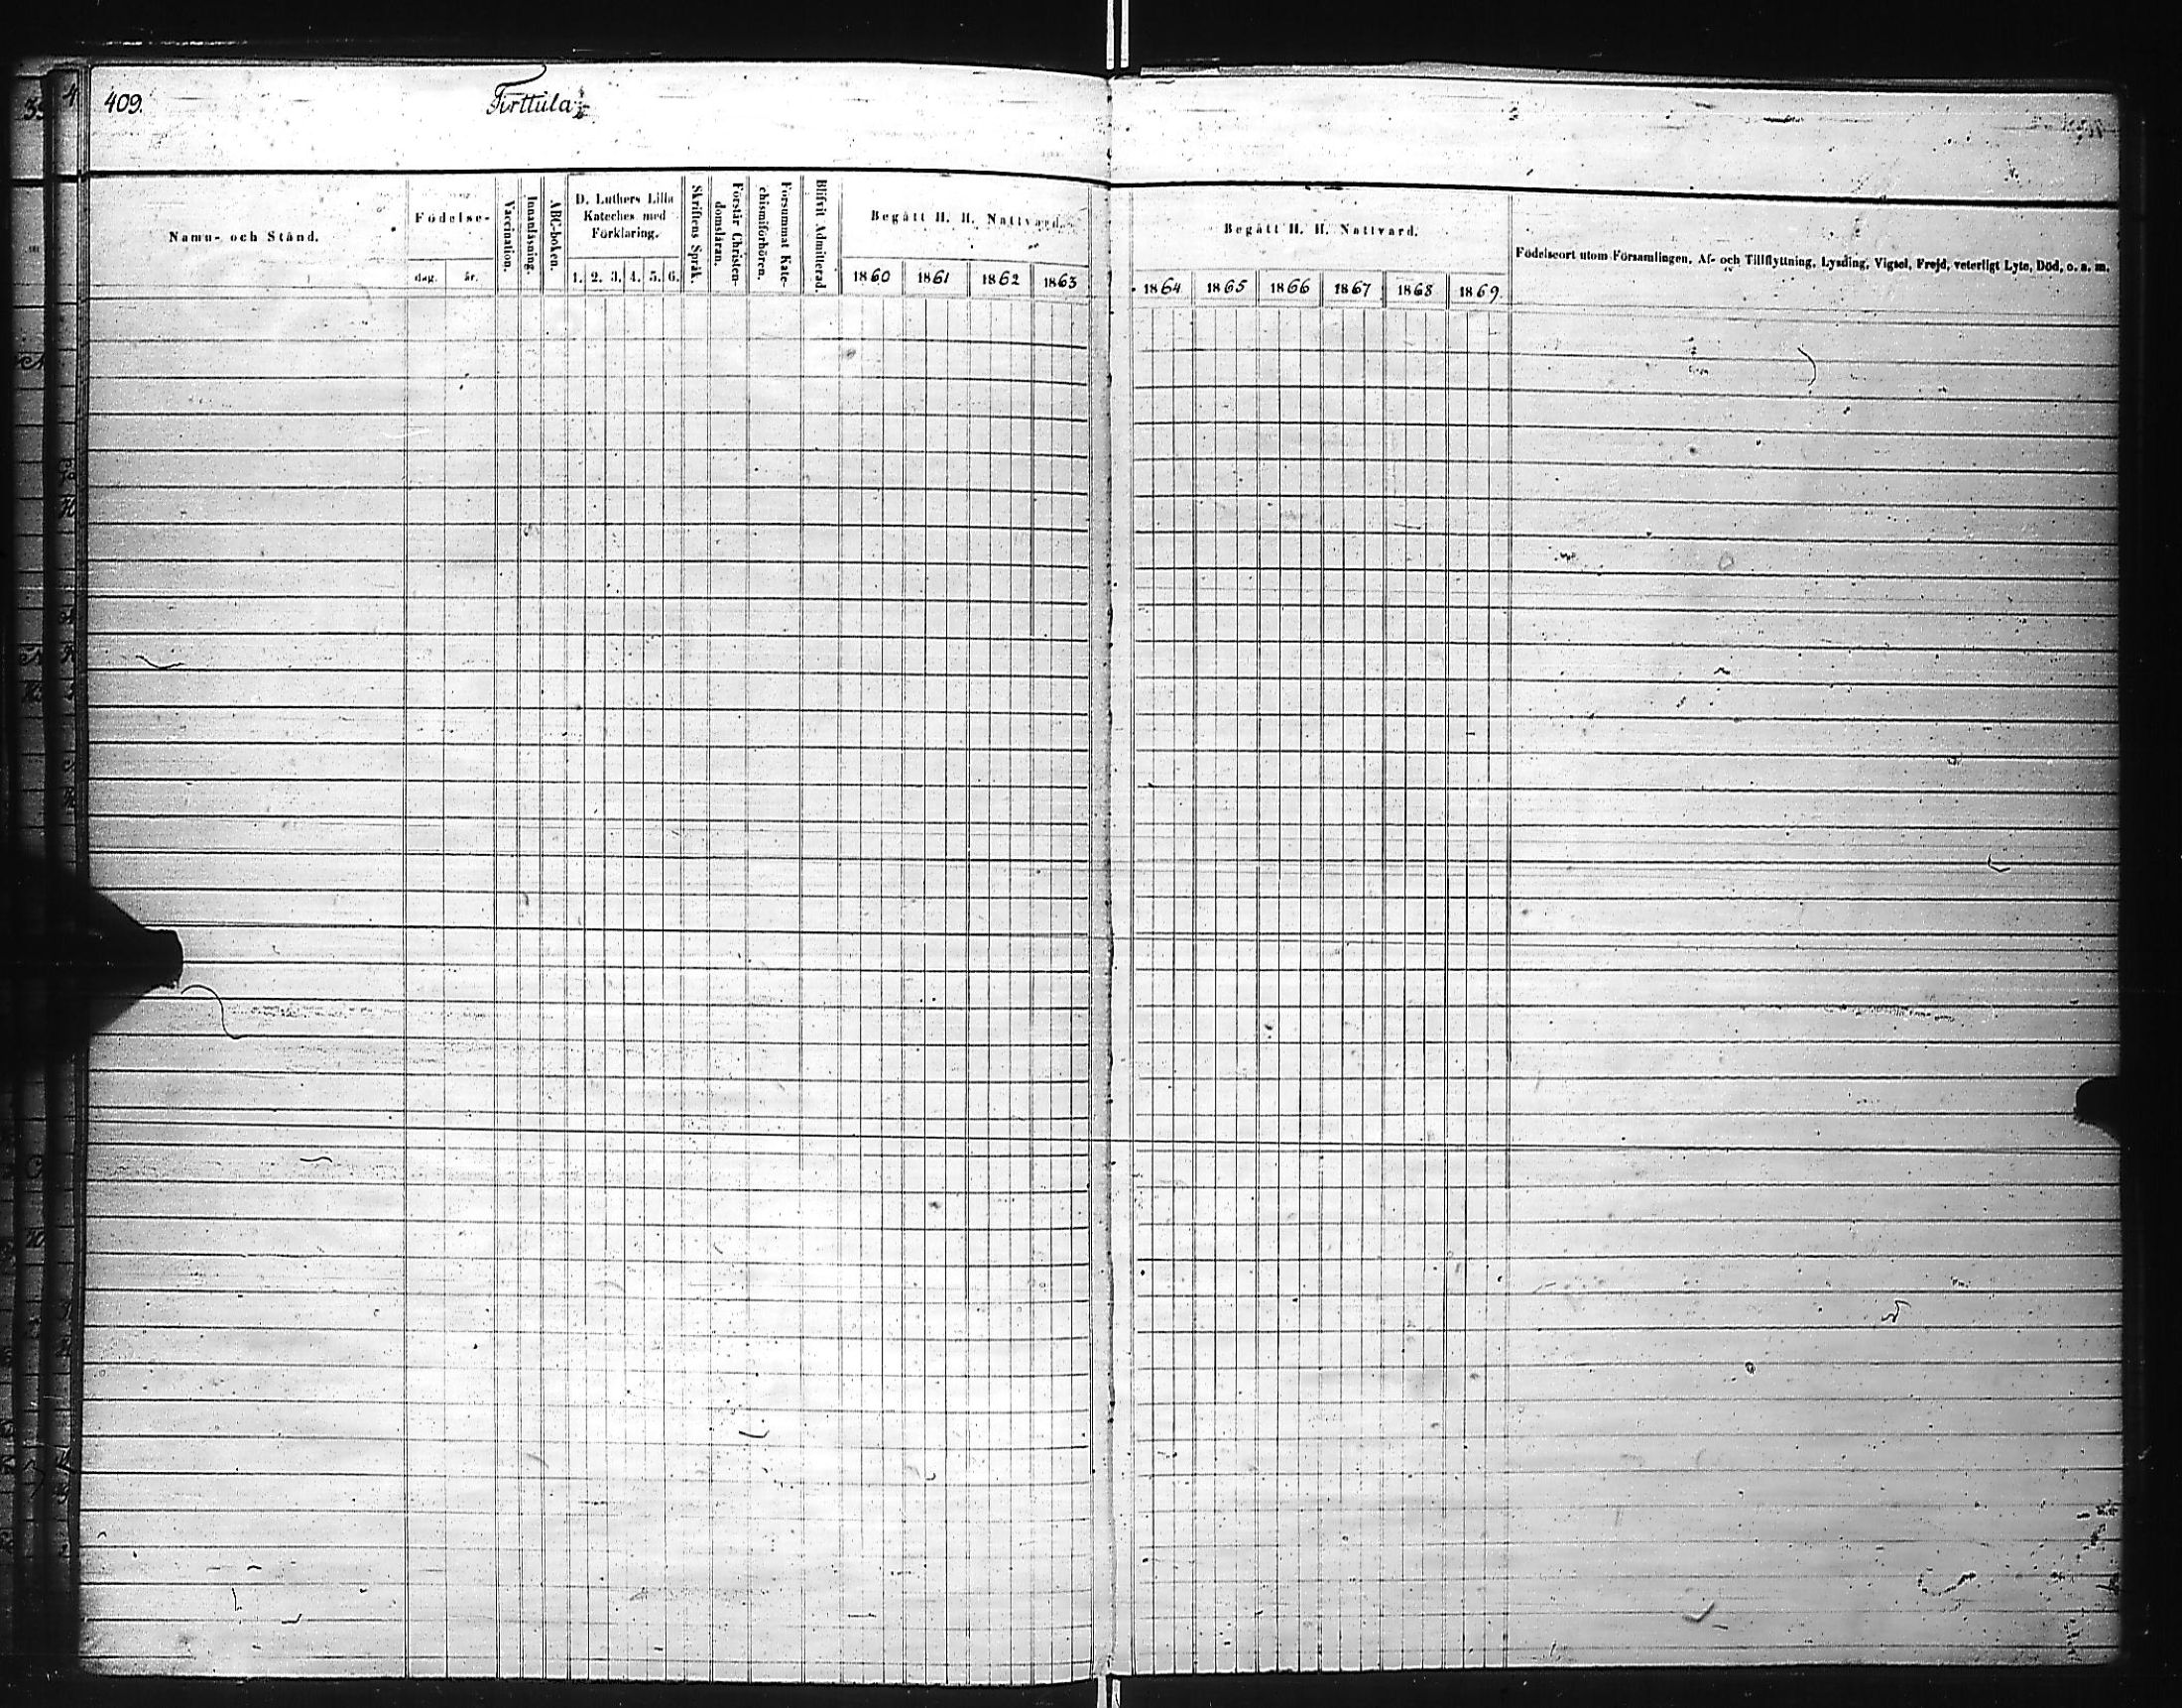 409. Tirttula
Namn- och Stånd.
Födelse-
dag. år.
Vaccination.
Innanläsning.
ABC-boken.
D. Luthers Lilla
Kateches med
Förklaring.
1. 2. 3. 4. 5. 6.
Skriftens Språk.
Förstår Christen-
domsläran.
Försummat Kate-
chismiförhören.
Blifvit Admitterad.
Begått H. H. Nattvard.
1860 1861 1862 1863
Begått H. H. Nattvard.
1864 1865 1866 1867 1868 1869
Födelseort utom Församlingen, Af- och Tillflyttning, Lysding, Vigsel, Frejd, veterligt Lyte, Död, o. s. m.